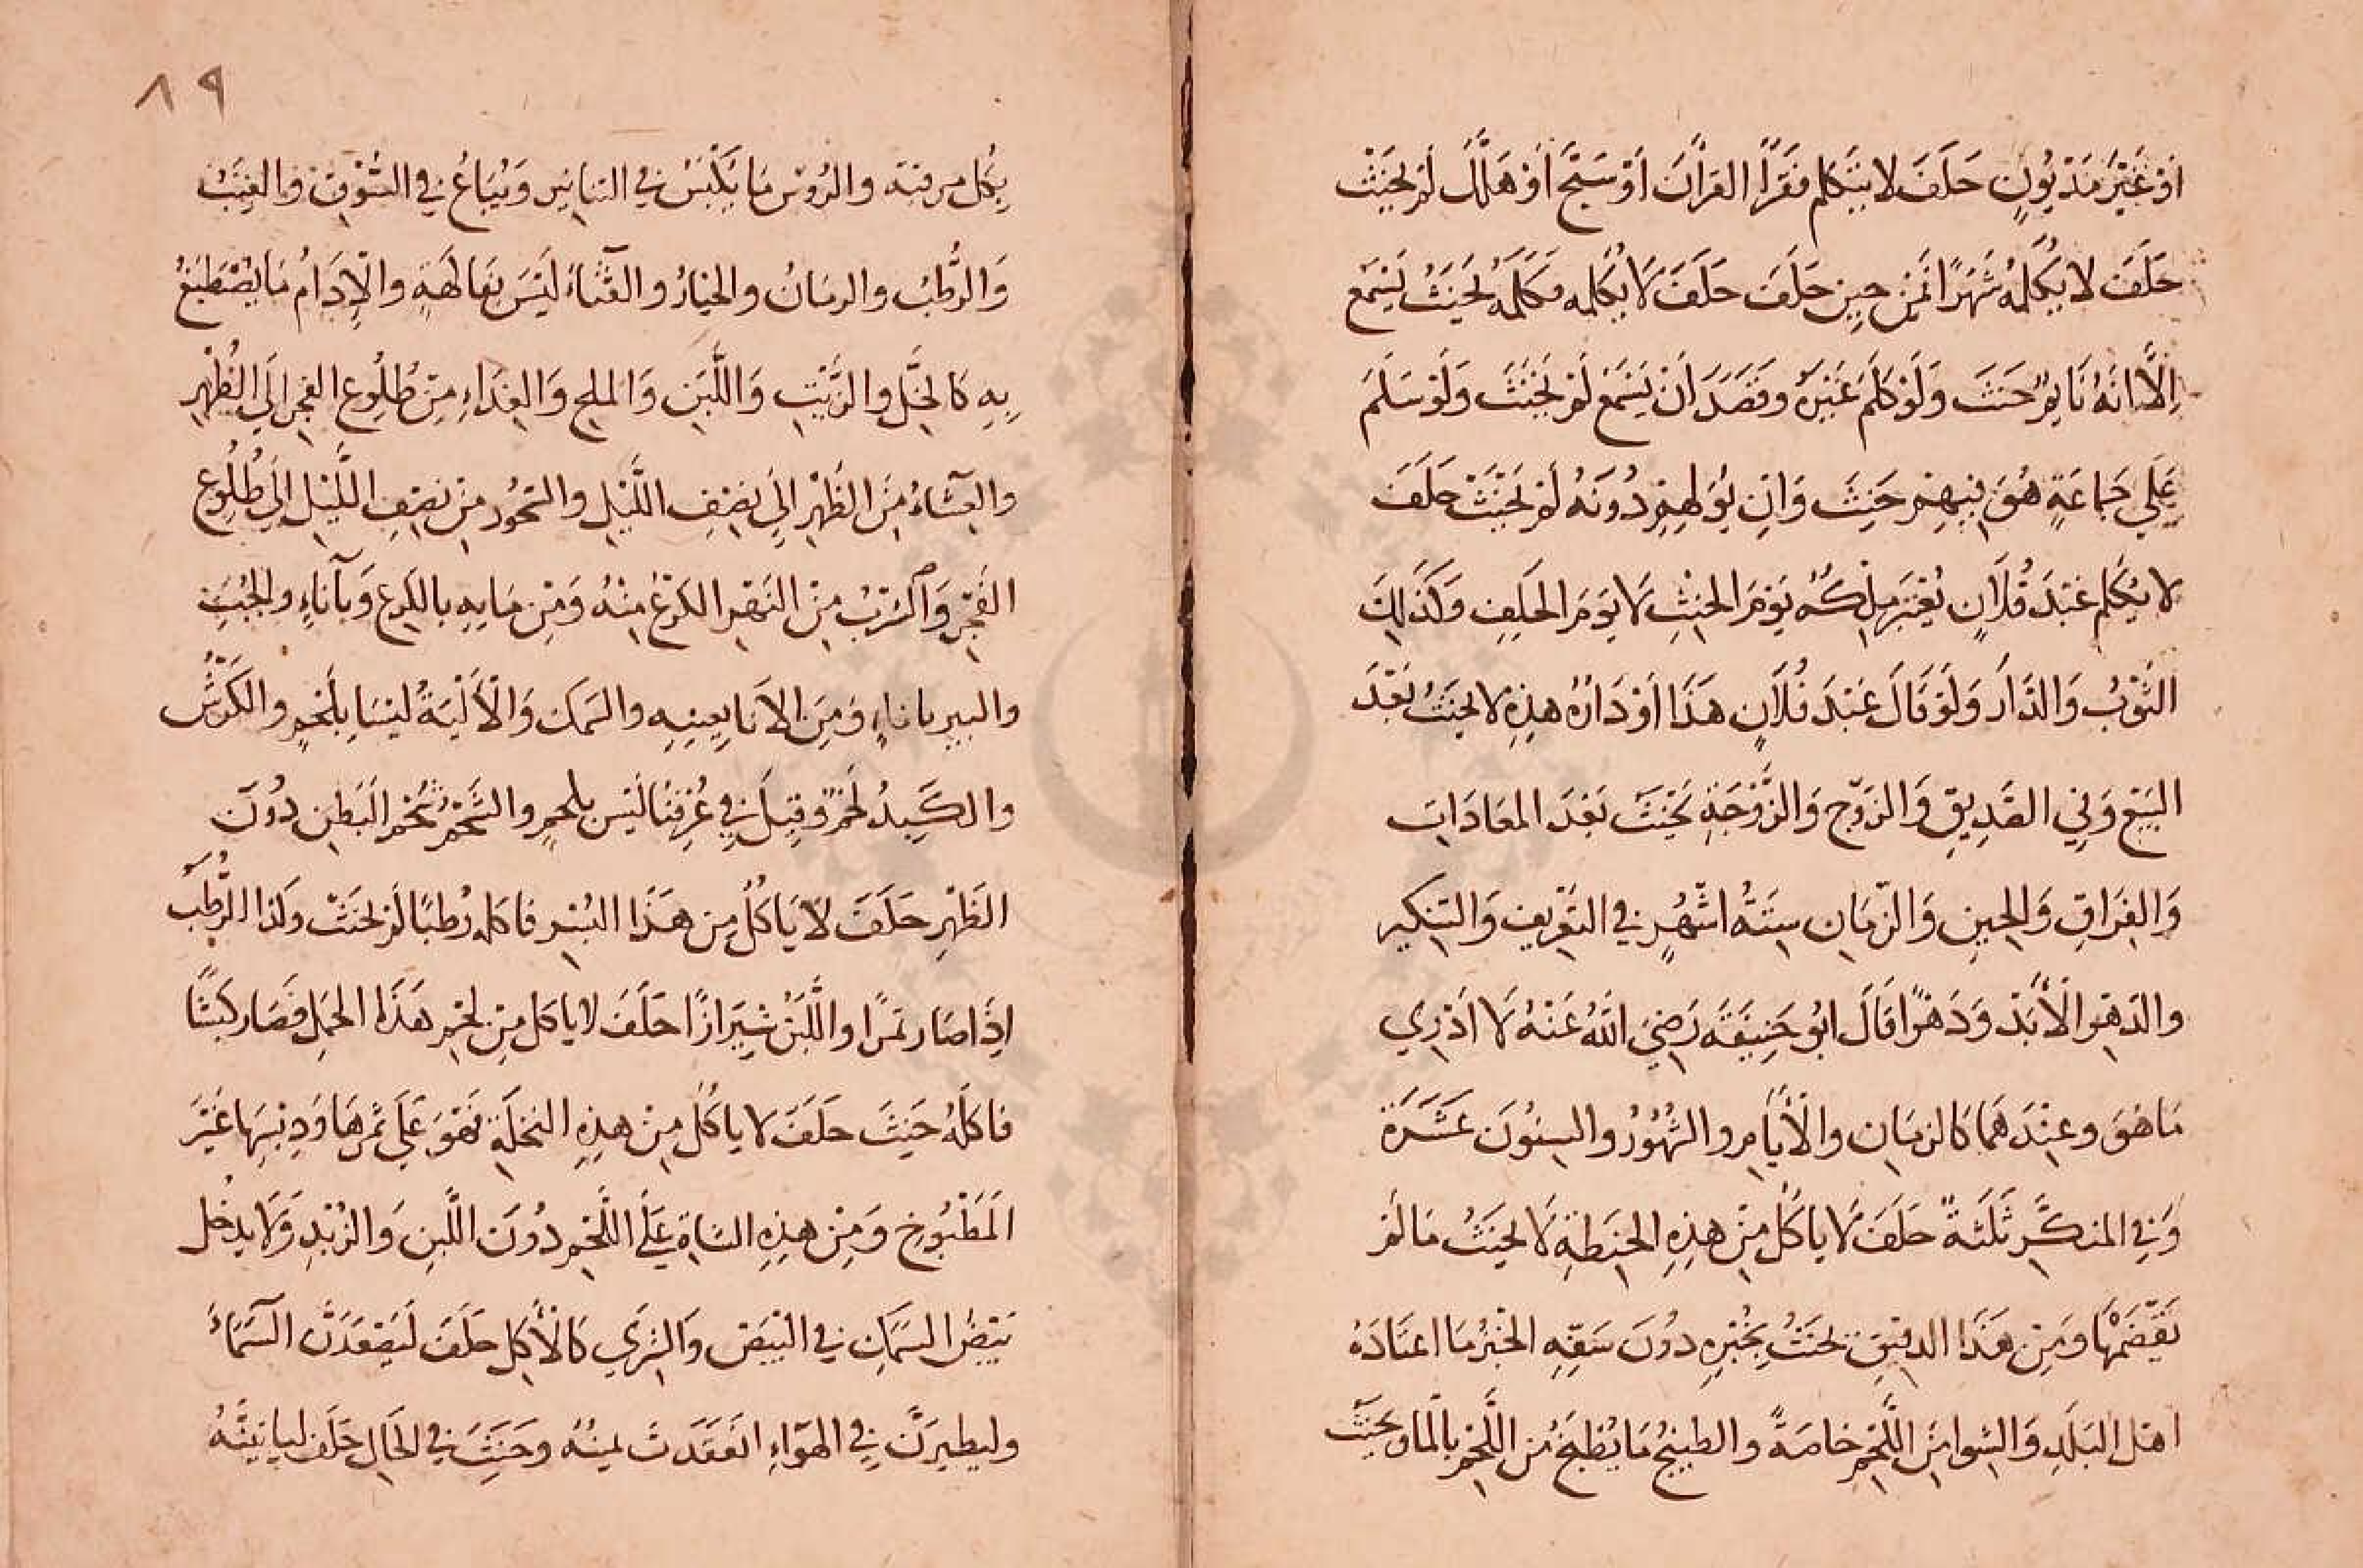 او غير مديون حلف لا يتكلم فقرأ القرآن او سبح أو هلل لم يحنث
حلف لا يكلمه شهرا فمن حين حلف حلف لا يكلمه فكلمه بحيث يسمع
الا انه نايم حنث ولو كلم غيره وقصد ان يسمع لم يحنث ولو سلم
على جماعة هو فيهم حنث وان نواهم دونه لم يحنث حلف
لا يكلم عبد فلان يعتبر ملكه يوم الحنث لا يوم الحلف وكذلك
الثوب والدار ولو قال عبد فلان هذا او داره هذه لا يحنث بعد
البيع وفي الصديق والزوج والزوجة يحنث بعد المعادات
والفراق والحين والزمان ستة اشهر في التعريف والتنكير
والدهر الأبد ودهرا قال ابو حنيفة رضي الله عنه لا ادري
ما هو وعندهما كالزمان والأيام والشهور والسنون عشرة
وفي المنكر ثلثة حلف لا ياكل من هذه الحنطة لا يحنث ما لم
يقضمها ومن هذا الدقيق يحنث بخبزه دون سفه الخبز ما اعتاده
اهل البلد والشوا من اللحم خاصة والطبيخ ما يطبخ من اللحم بالماء ويحنث
٨٩
بكل مرقته والروس ما يكبس في التنانير ويباع في السوق والعنب
والرطب والرمان والخيار والقثاء ليس بفاكهة والإدام ما يصطبغ
به كالخل والزيت واللبن والملح والغداء من طلوع الفجر الى الظهر
والعشاء من الظهر الى نصف الليل والسحور من نصف الليل الى طلوع
الفجر والشرب من النهر الكرع منه ومن مايه بالكرع وبآناء والجب
والبير باناء ومن الانا بعينه والسمك والألية ليسا بلحم والكرش
والكبد لحم وقيل في عرفنا ليس بلحم والشحم شحم البطن دون
الظهر حلف لا ياكل من هذا البسر فاكله رطبا لم يحنث وكذا الرطب
اذا صار تمرا واللبن شيرازا حلف لا ياكل من لحم هذا الحمل فصار كبشا
فاكله حنث حلف لا ياكل من هذه النخلة فهو على ثمرها ودبسها غير
المطبوخ ومن هذه الشاة على اللحم دون اللبن والزبد ولا يدخل
بيض السمك في البيض والشري كالأكل حلف ليصعدن السماء
وليطيرن في الهواء انعقدت يمينه وحنث في الحال حلف لياتينه